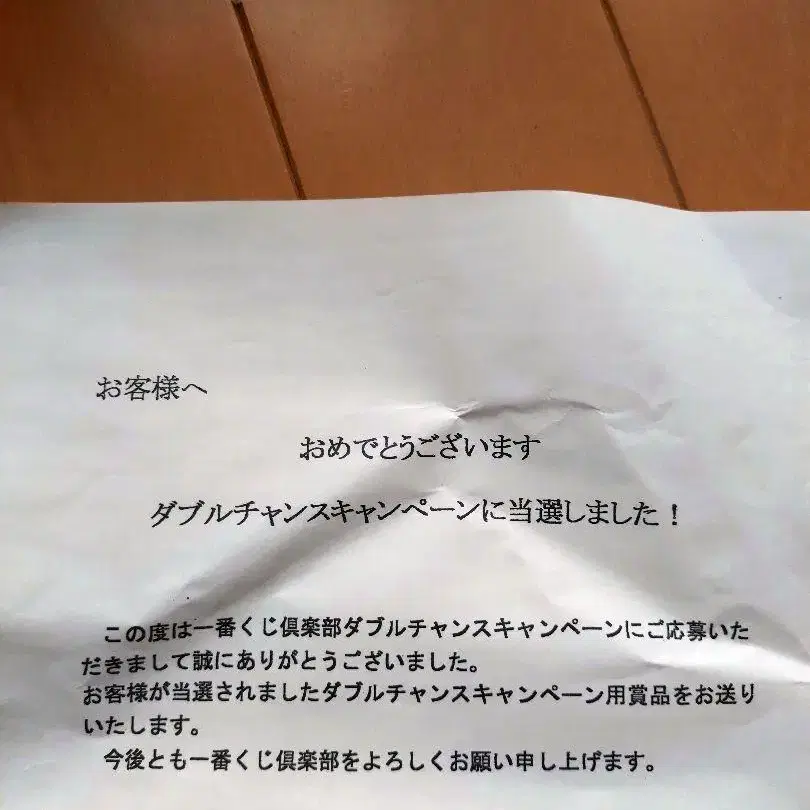 お客様へ
おめでとうございます
ダブルチャンスキャンペーンに当選しました！
この度は一番くじ倶楽部ダブルチャンスキャンペーンにご応募いた
だきまして誠にありがとうございました。
お客様が当選されましたダブルチャンスキャンペーン用賞品をお送り
いたします。
今後とも一番くじ倶楽部をよろしくお願い申し上げます。